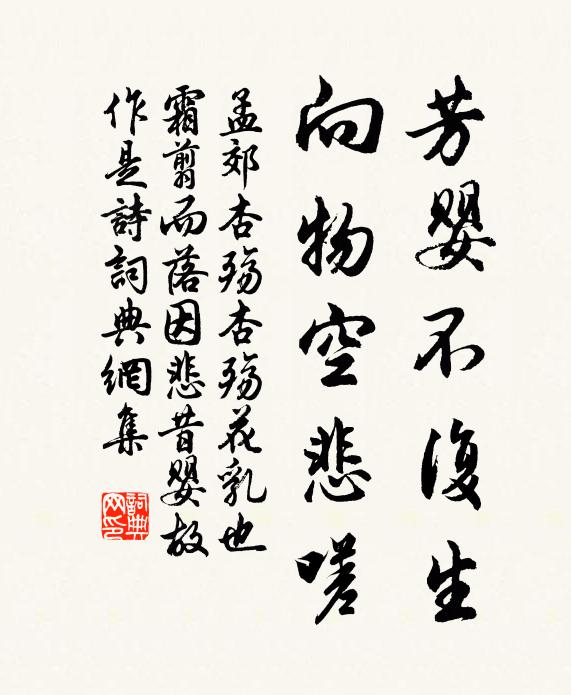 芳嬰不復生
向物空悲嗟
孟郊杏殤杏殤花乳也
霜翦而落因悲昔嬰故
作是詩詞典網集
詞典
网印